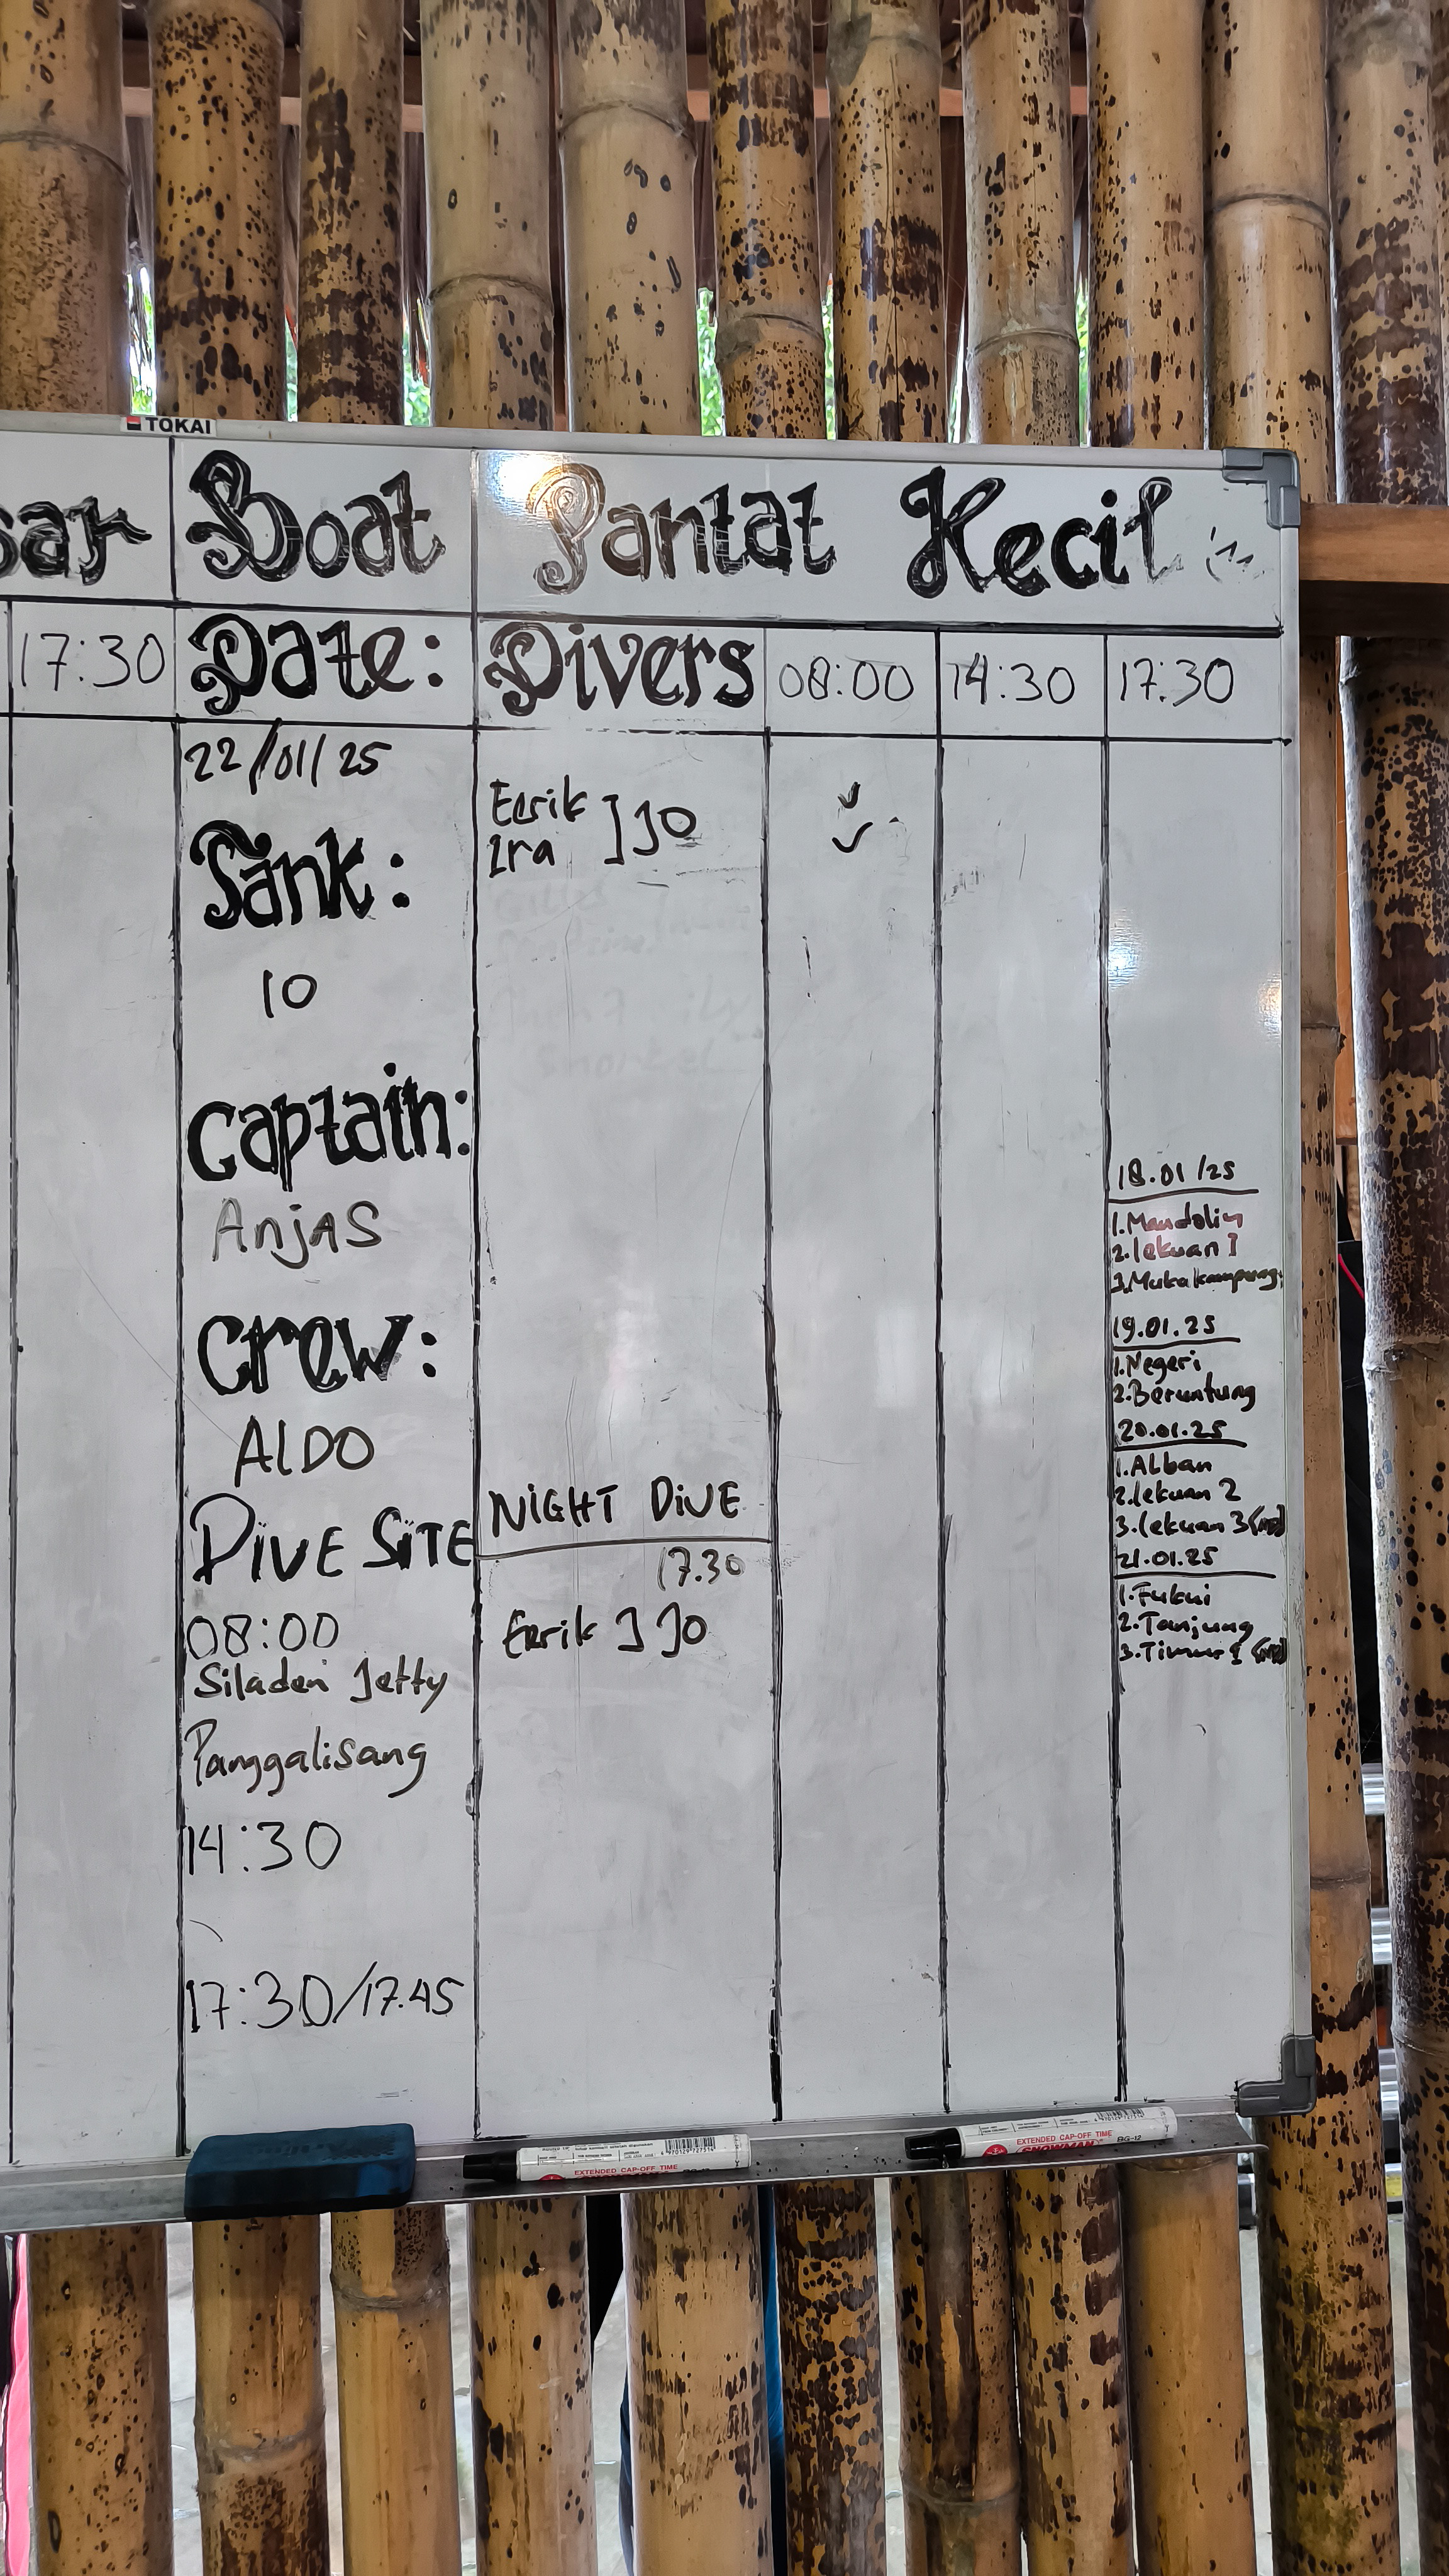 TOKAI
Boat Pantat Kecil
17:30 Date: Divers 08:00 14:30 17:30
22/01/25
Eerik
Ira ] JO
Tank:
10
Captain:
Anjas
Crew:
ALDO
DIVE SITE
08:00
Siladen Jetty
Panggalisang
14:30
17:30/17.45
NIGHT DIVE
17.30
Eerik ] JO
18.01/25
1.Mandolin
2.lekuan I
3.Muka kampung
19.01.25
1.Negeri
2.Beruntung
20.01.25
1.Alban
2.lekuan 2
3.lekuan 3
21.01.25
1.Fukui
2.Tanjung
3.Timur I
EXTENDED CAP-OFF TIME
EXTENDED CAP-OFF TIME
SNOWMAN BG-12